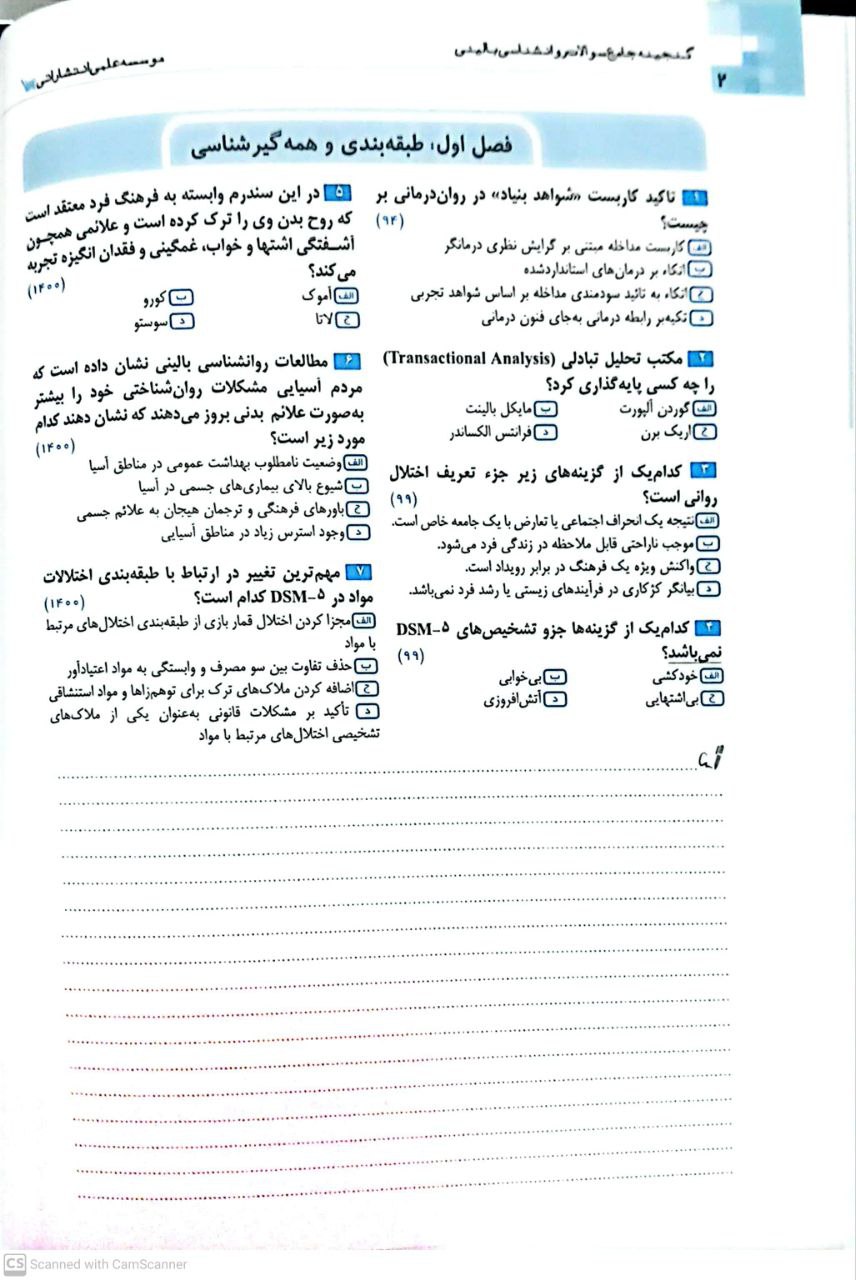 گنجینه جامع سوالات روانشناسی بالینی
موسسه علمی انتشاراتی
۲
فصل اول: طبقه‌بندی و همه‌گیرشناسی
۱ تاکید کاربست «شواهد بنیاد» در روان‌درمانی بر
چیست؟ (۹۴)
الف کاربست مداخله مبتنی بر گرایش نظری درمانگر
ب اتکاء بر درمان‌های استانداردشده
ج اتکاء به تائید سودمندی مداخله بر اساس شواهد تجربی
د تکیه‌بر رابطه درمانی به‌جای فنون درمانی
۲ مکتب تحلیل تبادلی (Transactional Analysis)
را چه کسی پایه‌گذاری کرد؟
الف گوردن آلپورت ب مایکل بالینت
ج اریک برن د فرانتس الکساندر
۳ کدام‌یک از گزینه‌های زیر جزء تعریف اختلال
روانی است؟ (۹۹)
الف نتیجه یک انحراف اجتماعی یا تعارض با یک جامعه خاص است.
ب موجب ناراحتی قابل ملاحظه در زندگی فرد می‌شود.
ج واکنش ویژه یک فرهنگ در برابر رویداد است.
د بیانگر کژکاری در فرآیندهای زیستی یا رشد فرد نمی‌باشد.
۴ کدام‌یک از گزینه‌ها جزو تشخیص‌های DSM-۵
نمی‌باشد؟ (۹۹)
الف خودکشی ب بی‌خوابی
ج بی‌اشتهایی د آتش‌افروزی
۵ در این سندرم وابسته به فرهنگ فرد معتقد است
که روح بدن وی را ترک کرده است و علائمی همچون
آشفتگی اشتها و خواب، غمگینی و فقدان انگیزه تجربه
می‌کند؟ (۱۴۰۰)
الف آموک ب کورو
ج لاتا د سوستو
۶ مطالعات روانشناسی بالینی نشان داده است که
مردم آسیایی مشکلات روان‌شناختی خود را بیشتر
به‌صورت علائم بدنی بروز می‌دهند که نشان دهند کدام
مورد زیر است؟ (۱۴۰۰)
الف وضعیت نامطلوب بهداشت عمومی در مناطق آسیا
ب شیوع بالای بیماری‌های جسمی در آسیا
ج باورهای فرهنگی و ترجمان هیجان به علائم جسمی
د وجود استرس زیاد در مناطق آسیایی
۷ مهم‌ترین تغییر در ارتباط با طبقه‌بندی اختلالات
مواد در DSM-۵ کدام است؟ (۱۴۰۰)
الف مجزا کردن اختلال قمار بازی از طبقه‌بندی اختلال‌های مرتبط
با مواد
ب حذف تفاوت بین سو مصرف و وابستگی به مواد اعتیادآور
ج اضافه کردن ملاک‌های ترک برای توهم‌زاها و مواد استنشاقی
د تأکید بر مشکلات قانونی به‌عنوان یکی از ملاک‌های
تشخیصی اختلال‌های مرتبط با مواد
CS Scanned with CamScanner